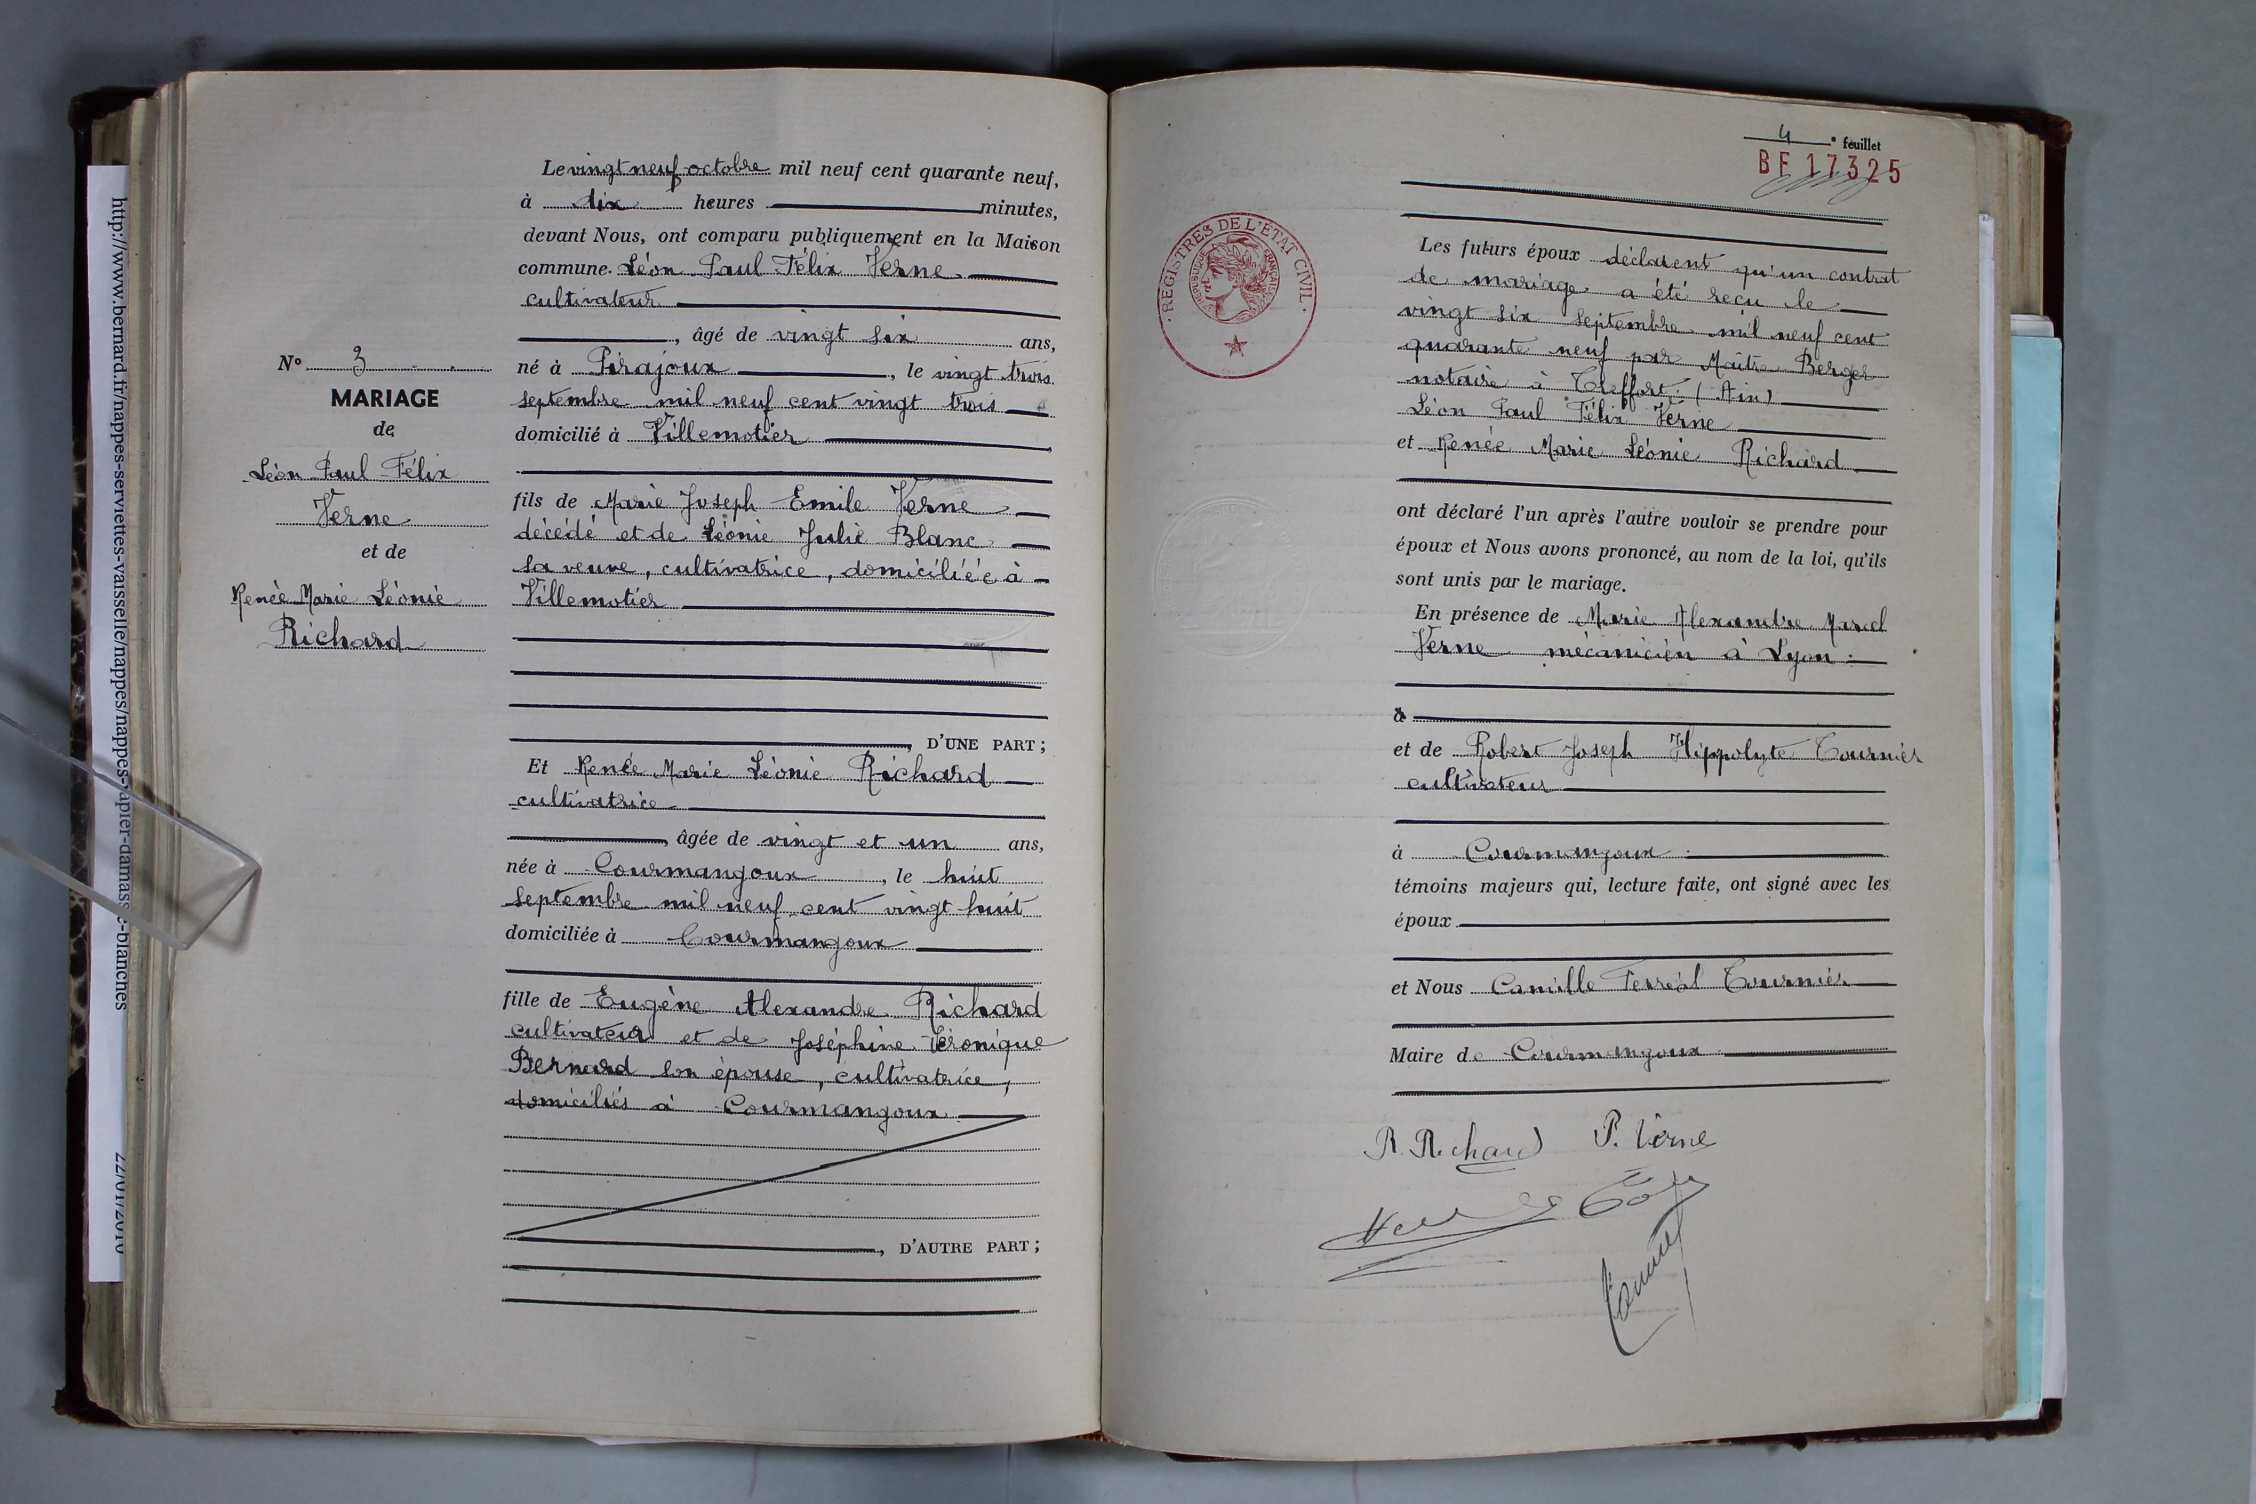 Le vingt neuf octobre mil neuf cent quarante neuf,
à dix heures minutes,
devant Nous, ont comparu publiquement en la Maison
commune. Léon Paul Félix Verne
cultivateur
, âgé de vingt six ans,
né à Pirajoux, le vingt trois
septembre mil neuf cent vingt trois
domicilié à Villemotier
N° 3
MARIAGE
de
Léon Paul Félix
Verne
et de
Renée Marie Léonie
Richard
fils de Marie Joseph Emile Verne
décédé et de Léonie Julie Blanc
sa veuve, cultivatrice, domiciliée à
Villemotier
, D'UNE PART ;
Et Renée Marie Léonie Richard
cultivatrice
, âgée de vingt et un ans,
née à Courmangoux, le huit
septembre mil neuf cent vingt huit
domiciliée à Courmangoux
fille de Eugène Alexandre Richard
cultivateur et de Joséphine Véronique
Bernard son épouse, cultivatrice,
domiciliés à Courmangoux
, D'AUTRE PART ;
http://www.bernard.fr/nappes-serviettes-vaisselle/nappes/nappes-papier-damasse-blanches
22/01/2010
4e feuillet
BF 17325
REGISTRES DE L'ETAT CIVIL
REPUBLIQUE FRANÇAISE
Les futurs époux déclarent qu'un contrat
de mariage a été reçu le
vingt six septembre mil neuf cent
quarante neuf par Maître Berger
notaire à Treffort (Ain)
Léon Paul Félix Verne
et Renée Marie Léonie Richard
ont déclaré l'un après l'autre vouloir se prendre pour
époux et Nous avons prononcé, au nom de la loi, qu'ils
sont unis par le mariage.
En présence de Marie Alexandre Marcel
Verne mécanicien à Lyon
à
et de Robert Joseph Hippolyte Tournier
cultivateur
à Courmangoux
témoins majeurs qui, lecture faite, ont signé avec les
époux
et Nous Camille Ferréol Tournier
Maire de Courmangoux
R. Richard P. Verne
Tournier